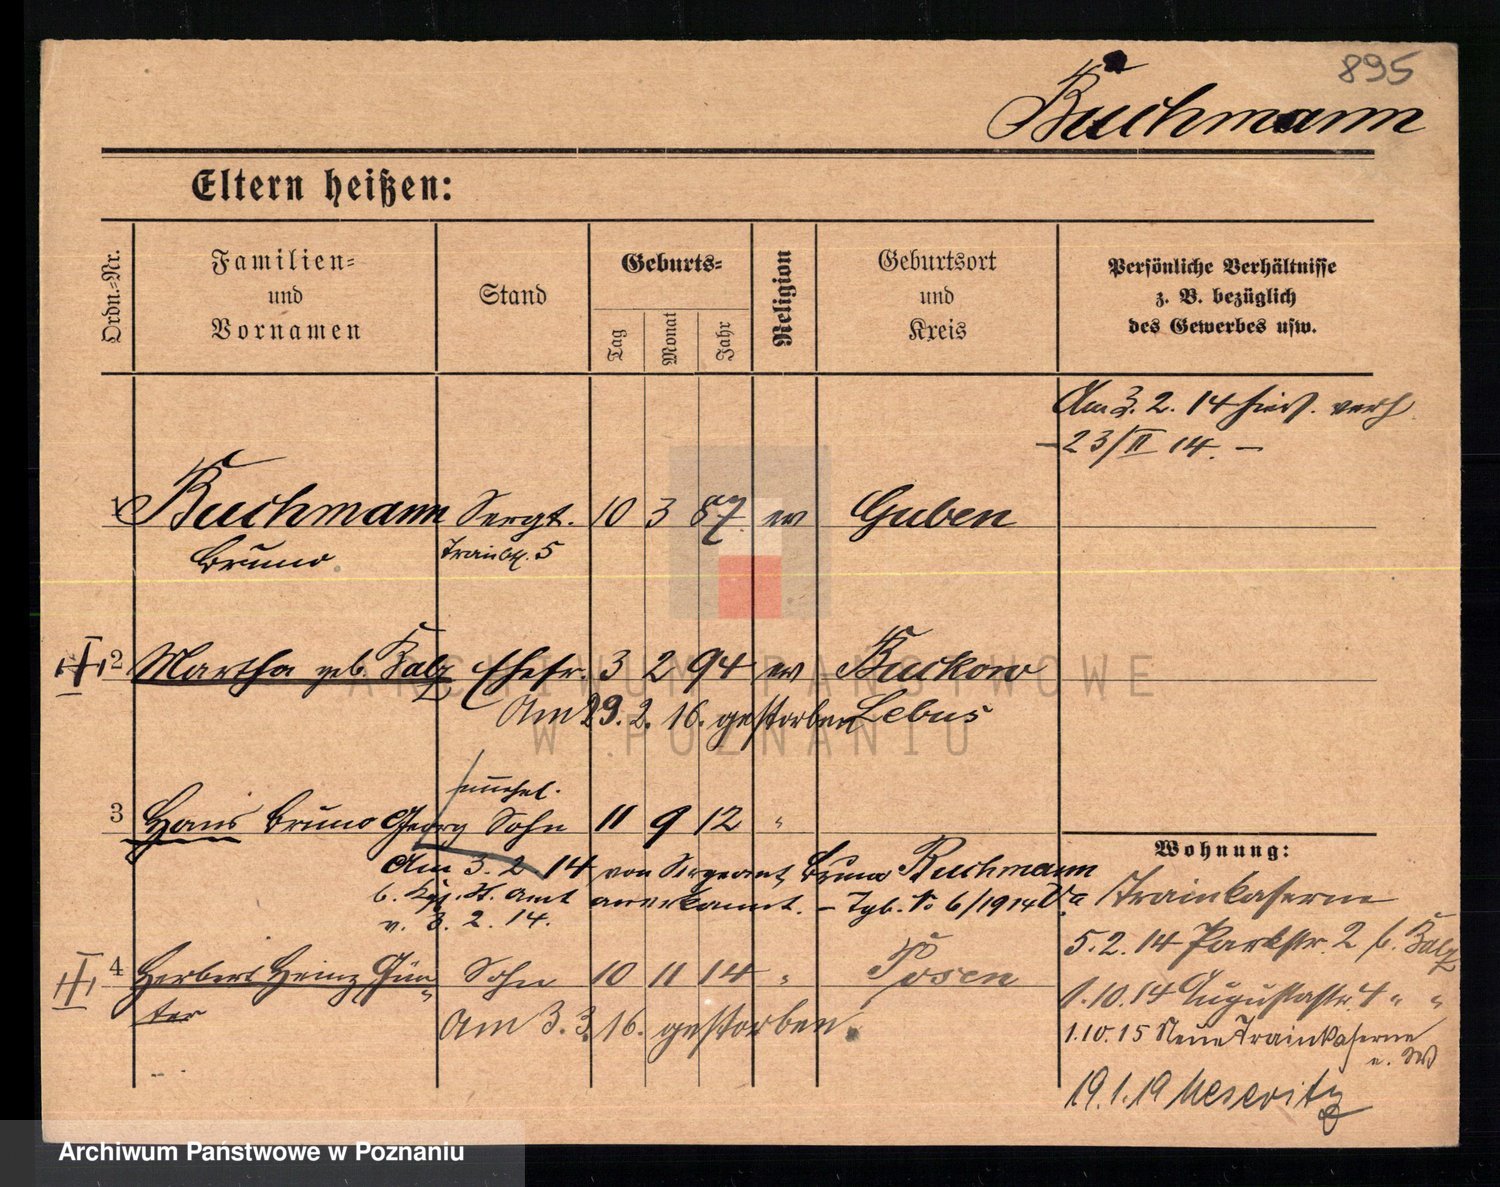 895
Buchmann
Eltern heißen:
Ordn.-Nr.
Familien- und Vornamen
Stand
Geburts-
Tag
Monat
Jahr
Religion
Geburtsort und Kreis
Persönliche Verhältnisse z. B. bezüglich des Gewerbes usw.
Am 3. 2. 14 hier. verh
- 23/II 14. -
1 Buchmann Sergt. 10 3 87. ev Guben
Bruno 5
2 Martha geb. Ehefr. 3 2 94 ev Buckow
Am 29. 2. 16. gestorben Lebus
unehel.
3 Hans Bruno Georg Sohn 11 9 12 "
Wohnung:
Am 3. 2 14 von Sergeant Bruno Buchmann
b. Kgl. St. Amt anerkannt. - Tgb. No 6/1914
v. 3. 2. 14.
Trainkaserne
5. 2. 14 Parkstr. 2 b.
4 Herbert Heinz Gün- Sohn 10 11 14 " Posen
ter
1. 10. 14 Augustastr. 4 " "
Am 3. 3. 16. gestorben.
1. 10. 15 Neue Trainkaserne
19. 1. 19 Meseritz
ARCHIWUM PAŃSTWOWE
W POZNANIU
Archiwum Państwowe w Poznaniu